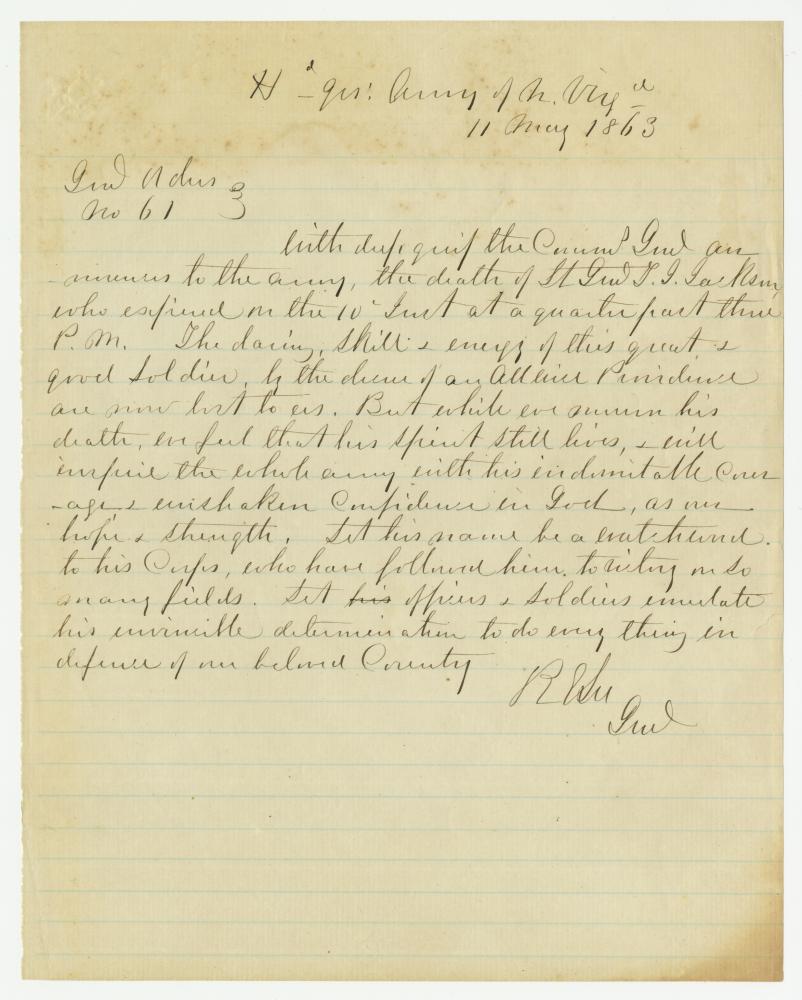 Hd qrs: Army of N. Virga
11 May 1863
Genl Orders
No 61
With deep grief the Commd Genl an
-nounces to the army, the death of Lt Genl T. J. Jackson,
who expired on the 10 Inst at a quarter past three
P. M. The daring, skill & energy of this great &
good soldier, by the decree of an Allwise Providence
are now lost to us. But while we mourn his
death, we feel that his spirit still lives, & will
inspire the whole army with his indomitable Cour
-age & unshaken Confidence in God, as our
hope & strength. Let his name be a watchword
to his Corps, who have followed him to victory on so
many fields. Let his officers & soldiers emulate
his invincible determination to do every thing in
defence of our beloved Country
R E Lee
Genl